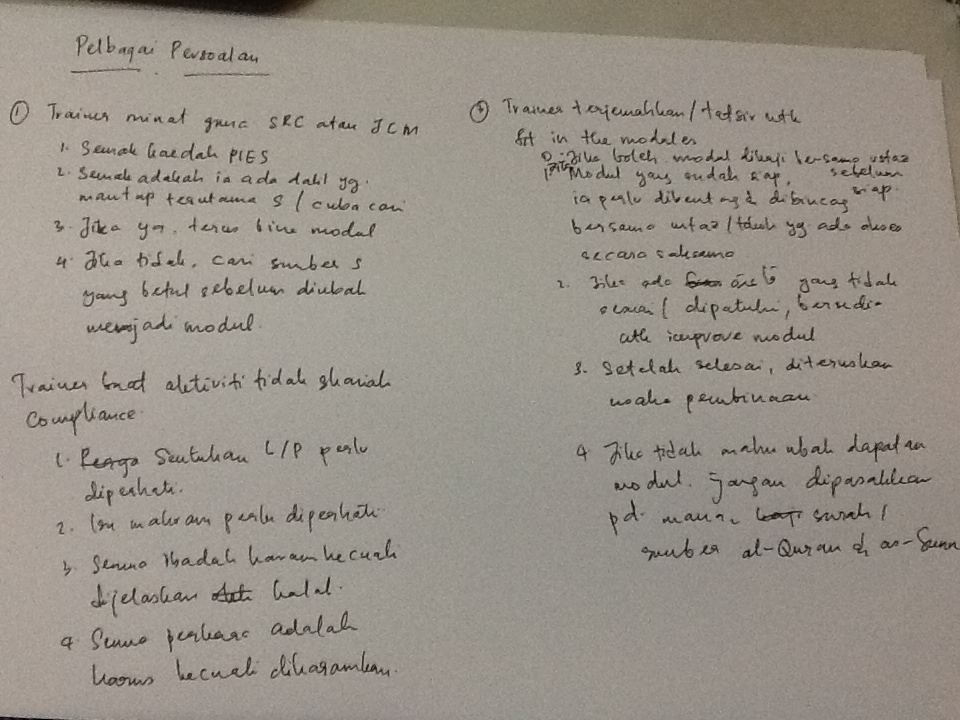 Pelbagai Persoalan
① Trainer minat guna SRC atau JCM
1. Semak kaedah PIES
2. Semak adakah ia ada dalil yg.
mantap terutama S / cuba cari
3. Jika ya, terus bina modal
4. Jika tidak, cari sumber S
yang betul sebelum diubah
menjadi modul.
Trainer buat aktiviti tidak shariah
Compliance
1. Sentuhan L/P perlu
diperhati.
2. Isu mahram perlu diperhati
3. Semua Ibadah haram kecuali
dijelaskan halal.
4 Semua perkara adalah
harus kecuali diharamkan.
Trainer terjemahkan / tafsir utk
fit in the modules
Jika boleh modal dikaji bersama ustaz
Modul yang sudah siap, sebelum
siap.
ia perlu dibentang & dibincang
bersama ustaz / yg ada akses
secara saksama
2. Jika ada yang tidak
sesuai / dipatuhi, bersedia
utk improve modul
3. Setelah selesai, diteruskan
usaha pembinaan
4 Jika tidak mahu ubah dapatan
modul. jangan dipasakkan
pd. mana2 surah /
sumber al-Quran & as-Sunn